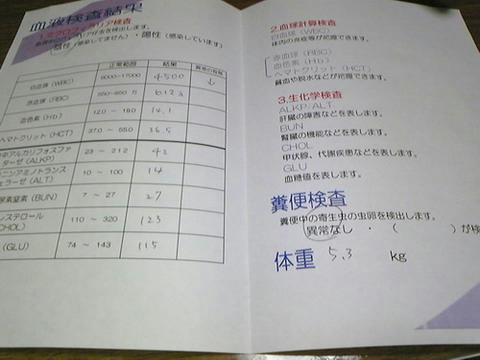 血液検査結果
1.ミクロフィラリア検査
陰性(感染してません)・陽性(感染しています)
正常範囲 結果
白血球(WBC) 6000~17000 4500 ↓
赤血球(RBC) 550~850万 612
血色素(Hb) 12.0~18.0 14.1
ヘマトクリット(HCT) 37.0~55.0
アルカリフォスファターゼ(ALKP) 23~212 42
アラニンアミノトランスフェラーゼ(ALT) 10~100 14
尿素窒素(BUN) 7~27 27
コレステロール(CHOL) 110~320 123
(GLU) 74~143 115
2.血球計算検査
白血球(WBC)
体内の炎症等が把握できます。
赤血球(RBC)
血色素(Hb)
ヘマトクリット(HCT)
貧血や脱水などが把握できます。
3.生化学検査
ALKP・ALT
肝臓の障害などを表します。
BUN
腎臓の機能などを表します。
CHOL
甲状腺、代謝疾患などを表します。
GLU
血糖値を表します。
糞便検査
糞便中の寄生虫の虫卵を検出します。
異常なし ・ ( )が検
体重 5.3 kg